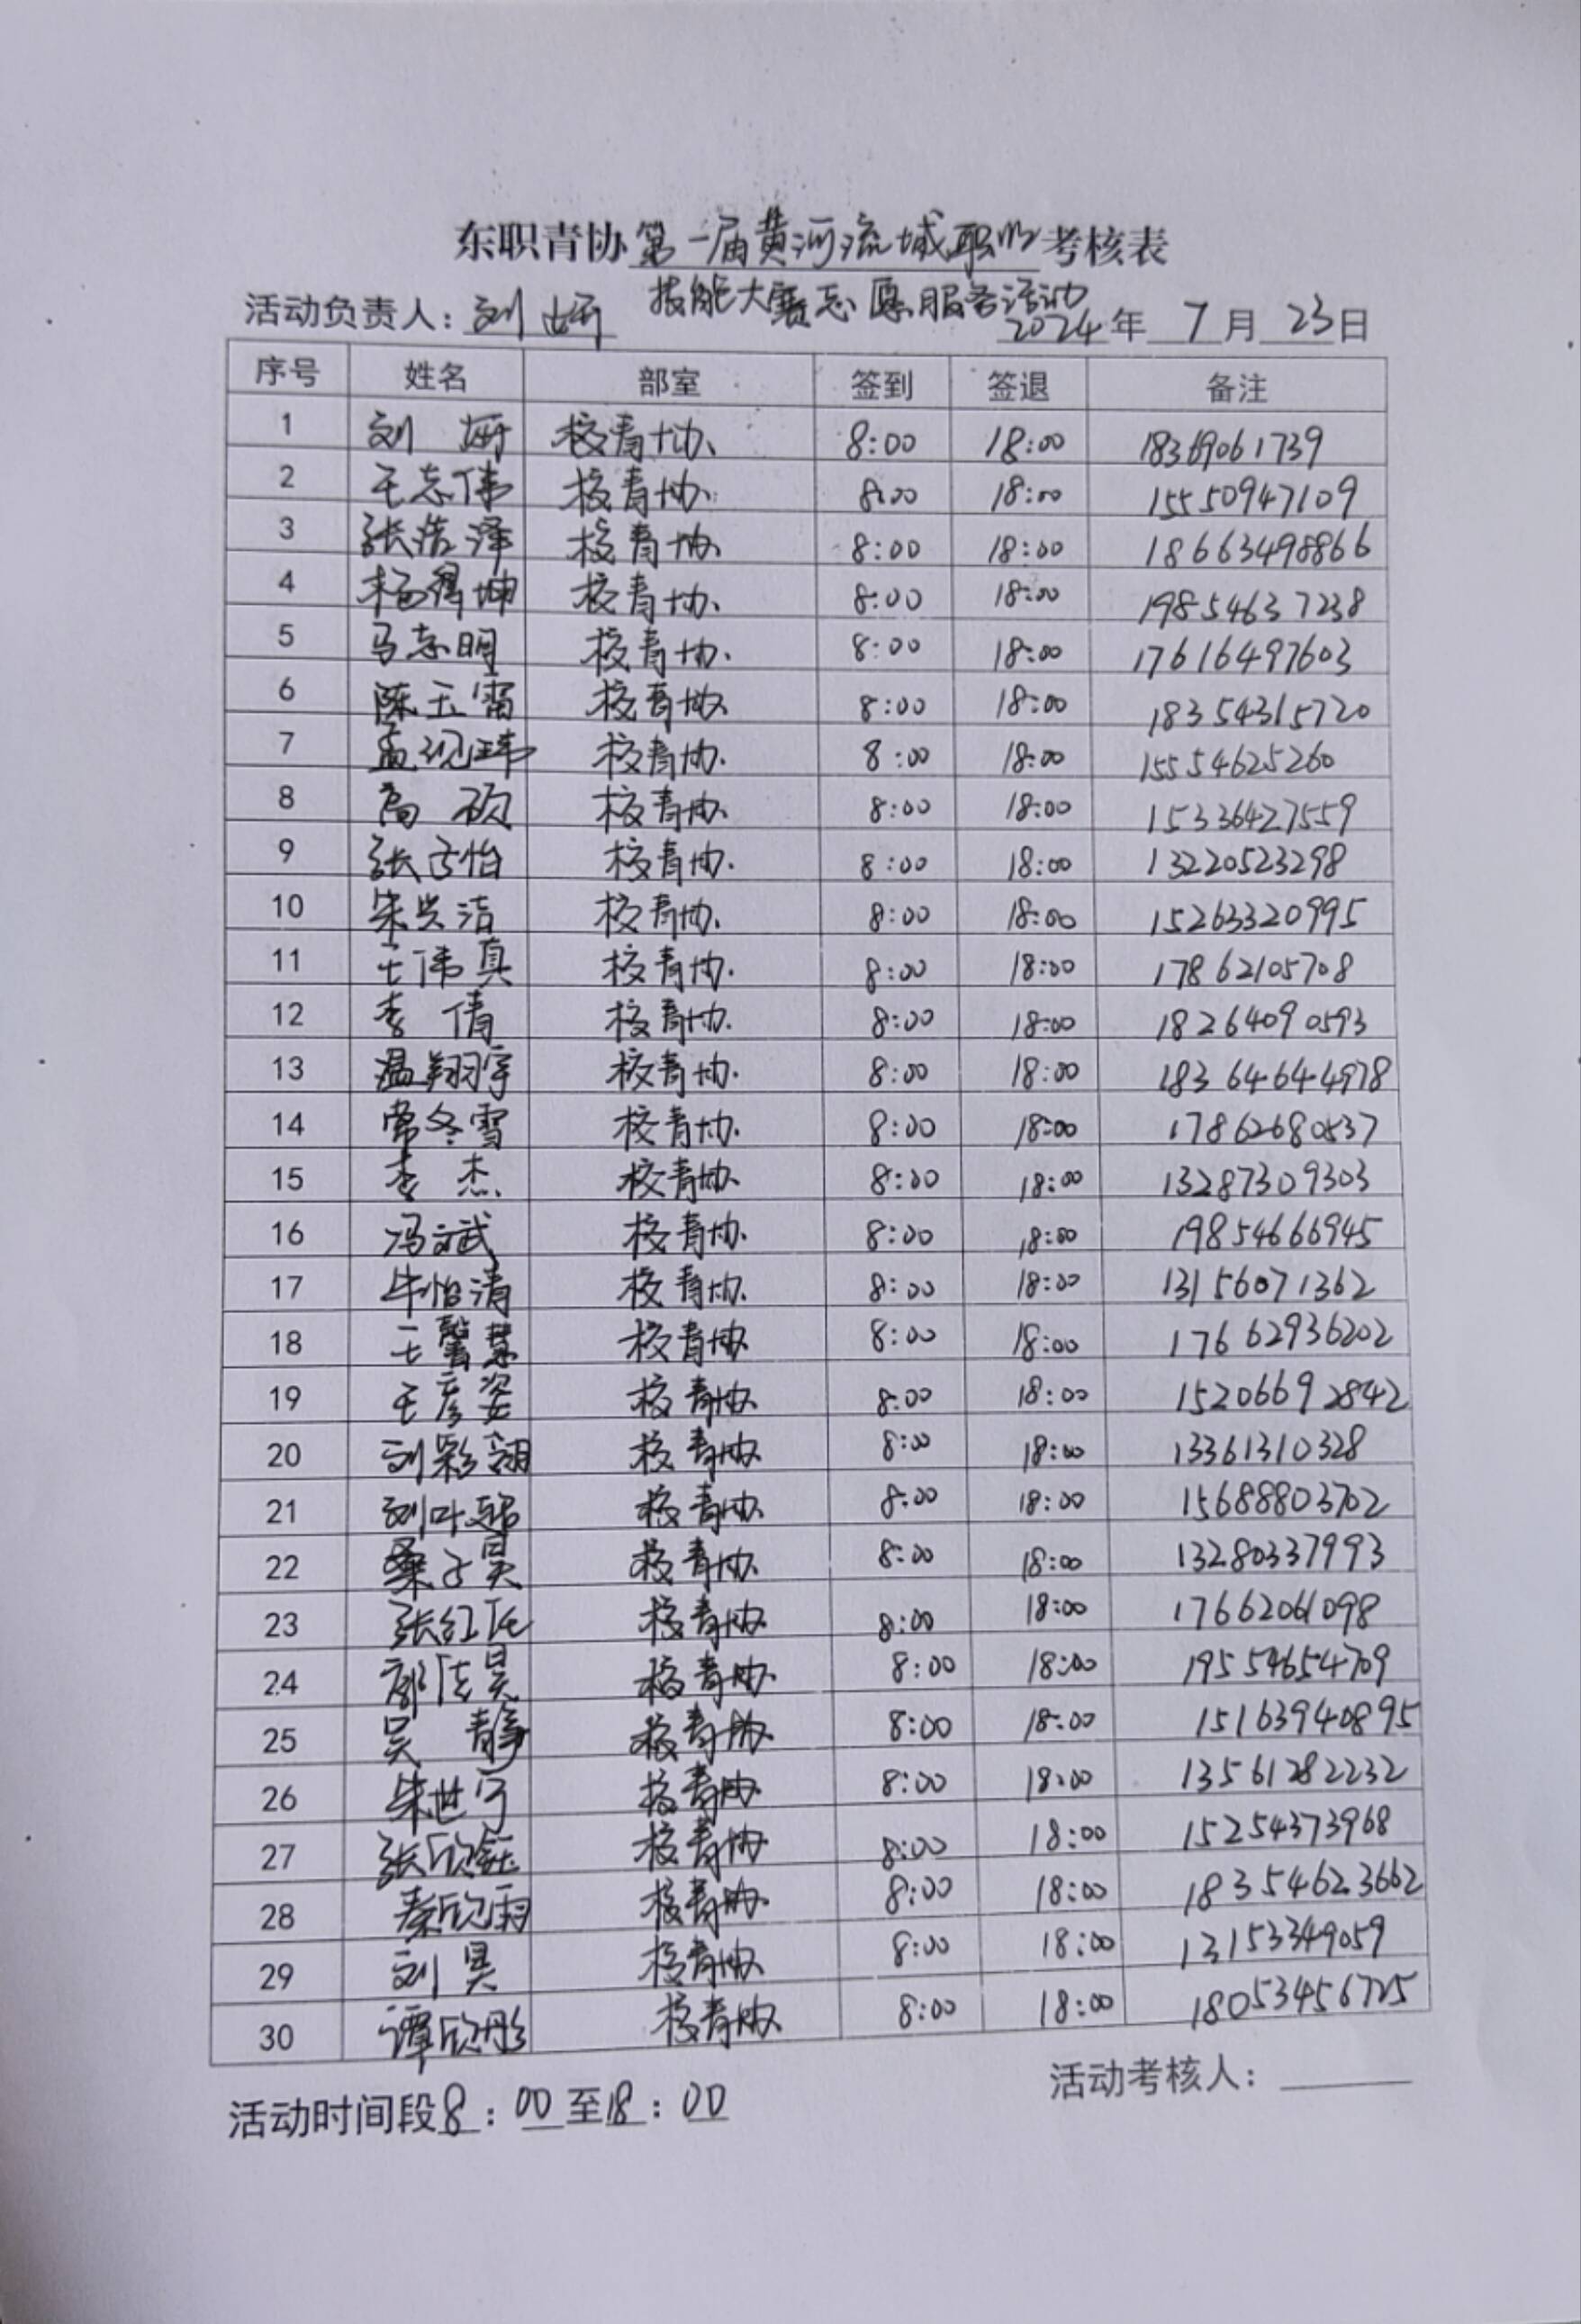 东职青协第一届黄河流域职业考核表
技能大赛志愿服务活动
活动负责人：刘妍 2024年7月23日
序号 姓名 部室 签到 签退 备注
1 刘妍 校青协 8:00 18:00 18369061739
2 王志伟 校青协 8:00 18:00 15550947109
3 张浩泽 校青协 8:00 18:00 18663498866
4 杨得坤 校青协 8:00 18:00 19854637238
5 马志明 校青协 8:00 18:00 17616497603
6 陈玉雷 校青协 8:00 18:00 18354315720
7 孟现玮 校青协 8:00 18:00 15554625260
8 高硕 校青协 8:00 18:00 15336427559
9 张子怡 校青协 8:00 18:00 13220523298
10 朱兴洁 校青协 8:00 18:00 15263320995
11 王伟真 校青协 8:00 18:00 17862105708
12 李倩 校青协 8:00 18:00 18264090593
13 温翔宇 校青协 8:00 18:00 18364644978
14 常冬雪 校青协 8:00 18:00 17862680537
15 李杰 校青协 8:00 18:00 13287309303
16 冯文斌 校青协 8:00 18:00 19854666945
17 牛怡清 校青协 8:00 18:00 13156071362
18 王馨慧 校青协 8:00 18:00 17662936202
19 王彦姿 校青协 8:00 18:00 15206692842
20 刘彩翎 校青协 8:00 18:00 13361310328
21 刘叶 校青协 8:00 18:00 15688803702
22 桑子昊 校青协 8:00 18:00 13280337993
23 张红 校青协 8:00 18:00 17662061098
24 昊 校青协 8:00 18:00 19554654709
25 吴静 校青协 8:00 18:00 15163940895
26 朱世宁 校青协 8:00 18:00 13561282232
27 张欣钰 校青协 8:00 18:00 15254373968
28 秦欣雨 校青协 8:00 18:00 18354623662
29 刘昊 校青协 8:00 18:00 13153349059
30 谭欣彤 校青协 8:00 18:00 18053456725
活动考核人：
活动时间段8：00至18：00